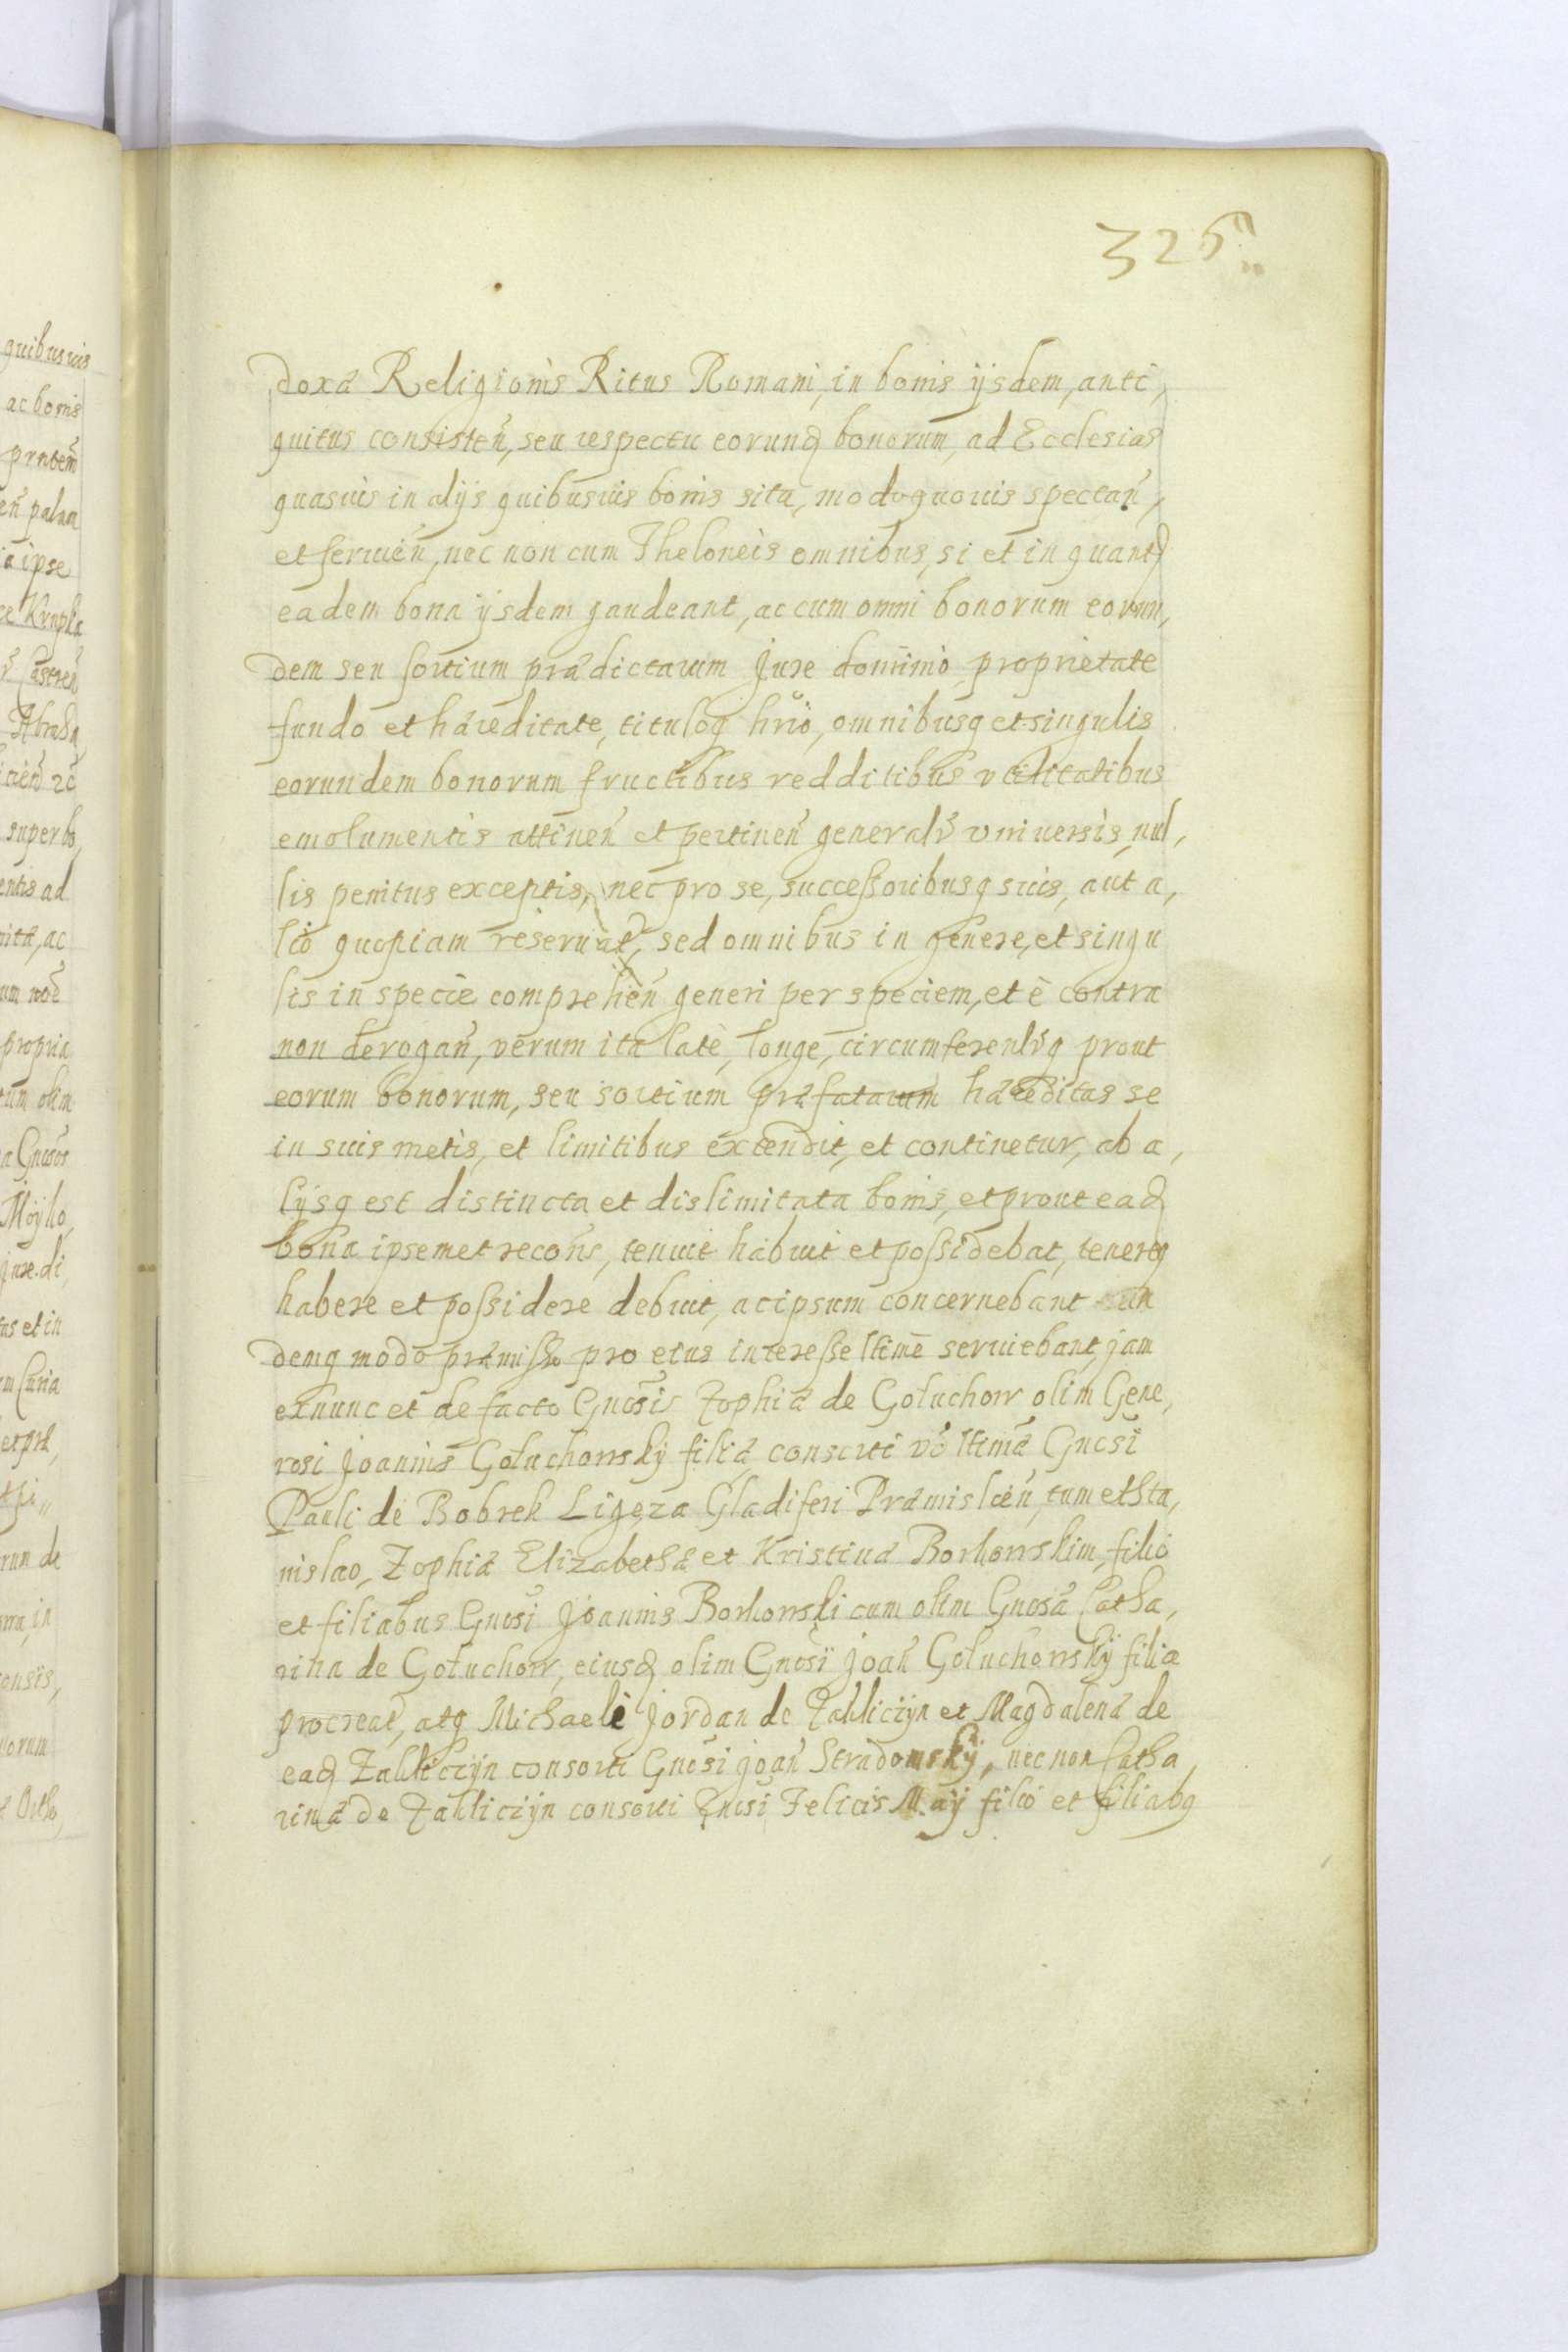 325
doxæ Religionis Ritus Romani, in bonis ijsdem, anti,
quitus consisteñ, seu respectu eorunđ bonorum, ad Ecclesias
quasuis in alijs quibusuis bonis sita, modoquouis spectañ,
et seruień, nec non cum Theloneis omnibus, si et in quantũ
eadem bona ijsdem gaudeant, ac cum omni bonorum eorun,
dem seu sortium prædictarum Jure dominio proprietate
fundo et hæreditate, tituloq hrio, omnibusq et singulis
eorundem bonorum fructibus redditibus vtilitatibus
emolumentis attineñ et pertineñ generalr vniuersis, nul,
lis penitus exceptis, nec pro se, successoribusq suis, aut a,
lio quopiam reseruat, sed omnibus in genere, et singu
lis in specie comprehień generi per speciem, et è contra
non derogañ, verum ita latè, longe, circumferenlrq prout
eorum bonorum, seu sortium præfatarum hæreditas se
in suis metis, et limitibus extendit, et continetur, ab a,
lijsq est distincta et dislimitata bonis, et prout eađ
bona ipsemet recons, tenuit habuit et possidebat, tenereq
habere et possidere debuit, ac ipsum concernebant
demq modo præmisso pro eius interesse ltime seruiebant, jam
exnunc et de facto Gnosis Zophiæ de Gołuchow olim Gene,
rosi Joannis Gołuchowskÿ filiæ consorti vo ltimæ Gnosi
Pauli de Bobrek Ligęza Gladiferi Præmislień, tum et Sta,
nislao, Zophiæ Elizabethæ et Kristinæ Borkowskim, filio
et filiabus Gnosi Joannis Borkowski cum olim Gnosa Catha,
rina de Gołuchow, eiusđ olim Gnosi Joañ Gołuchowskÿ filia
procreat, atq Michaeli Jordan de Zakliczÿn et Magdalenæ de
eađ Zakliczÿn consorti Gnosi Joañ Stradomskÿ, nec non Catha,
rinæ de Zakliczÿn consorti Gnosi Felicis Maÿ filio et filiabq